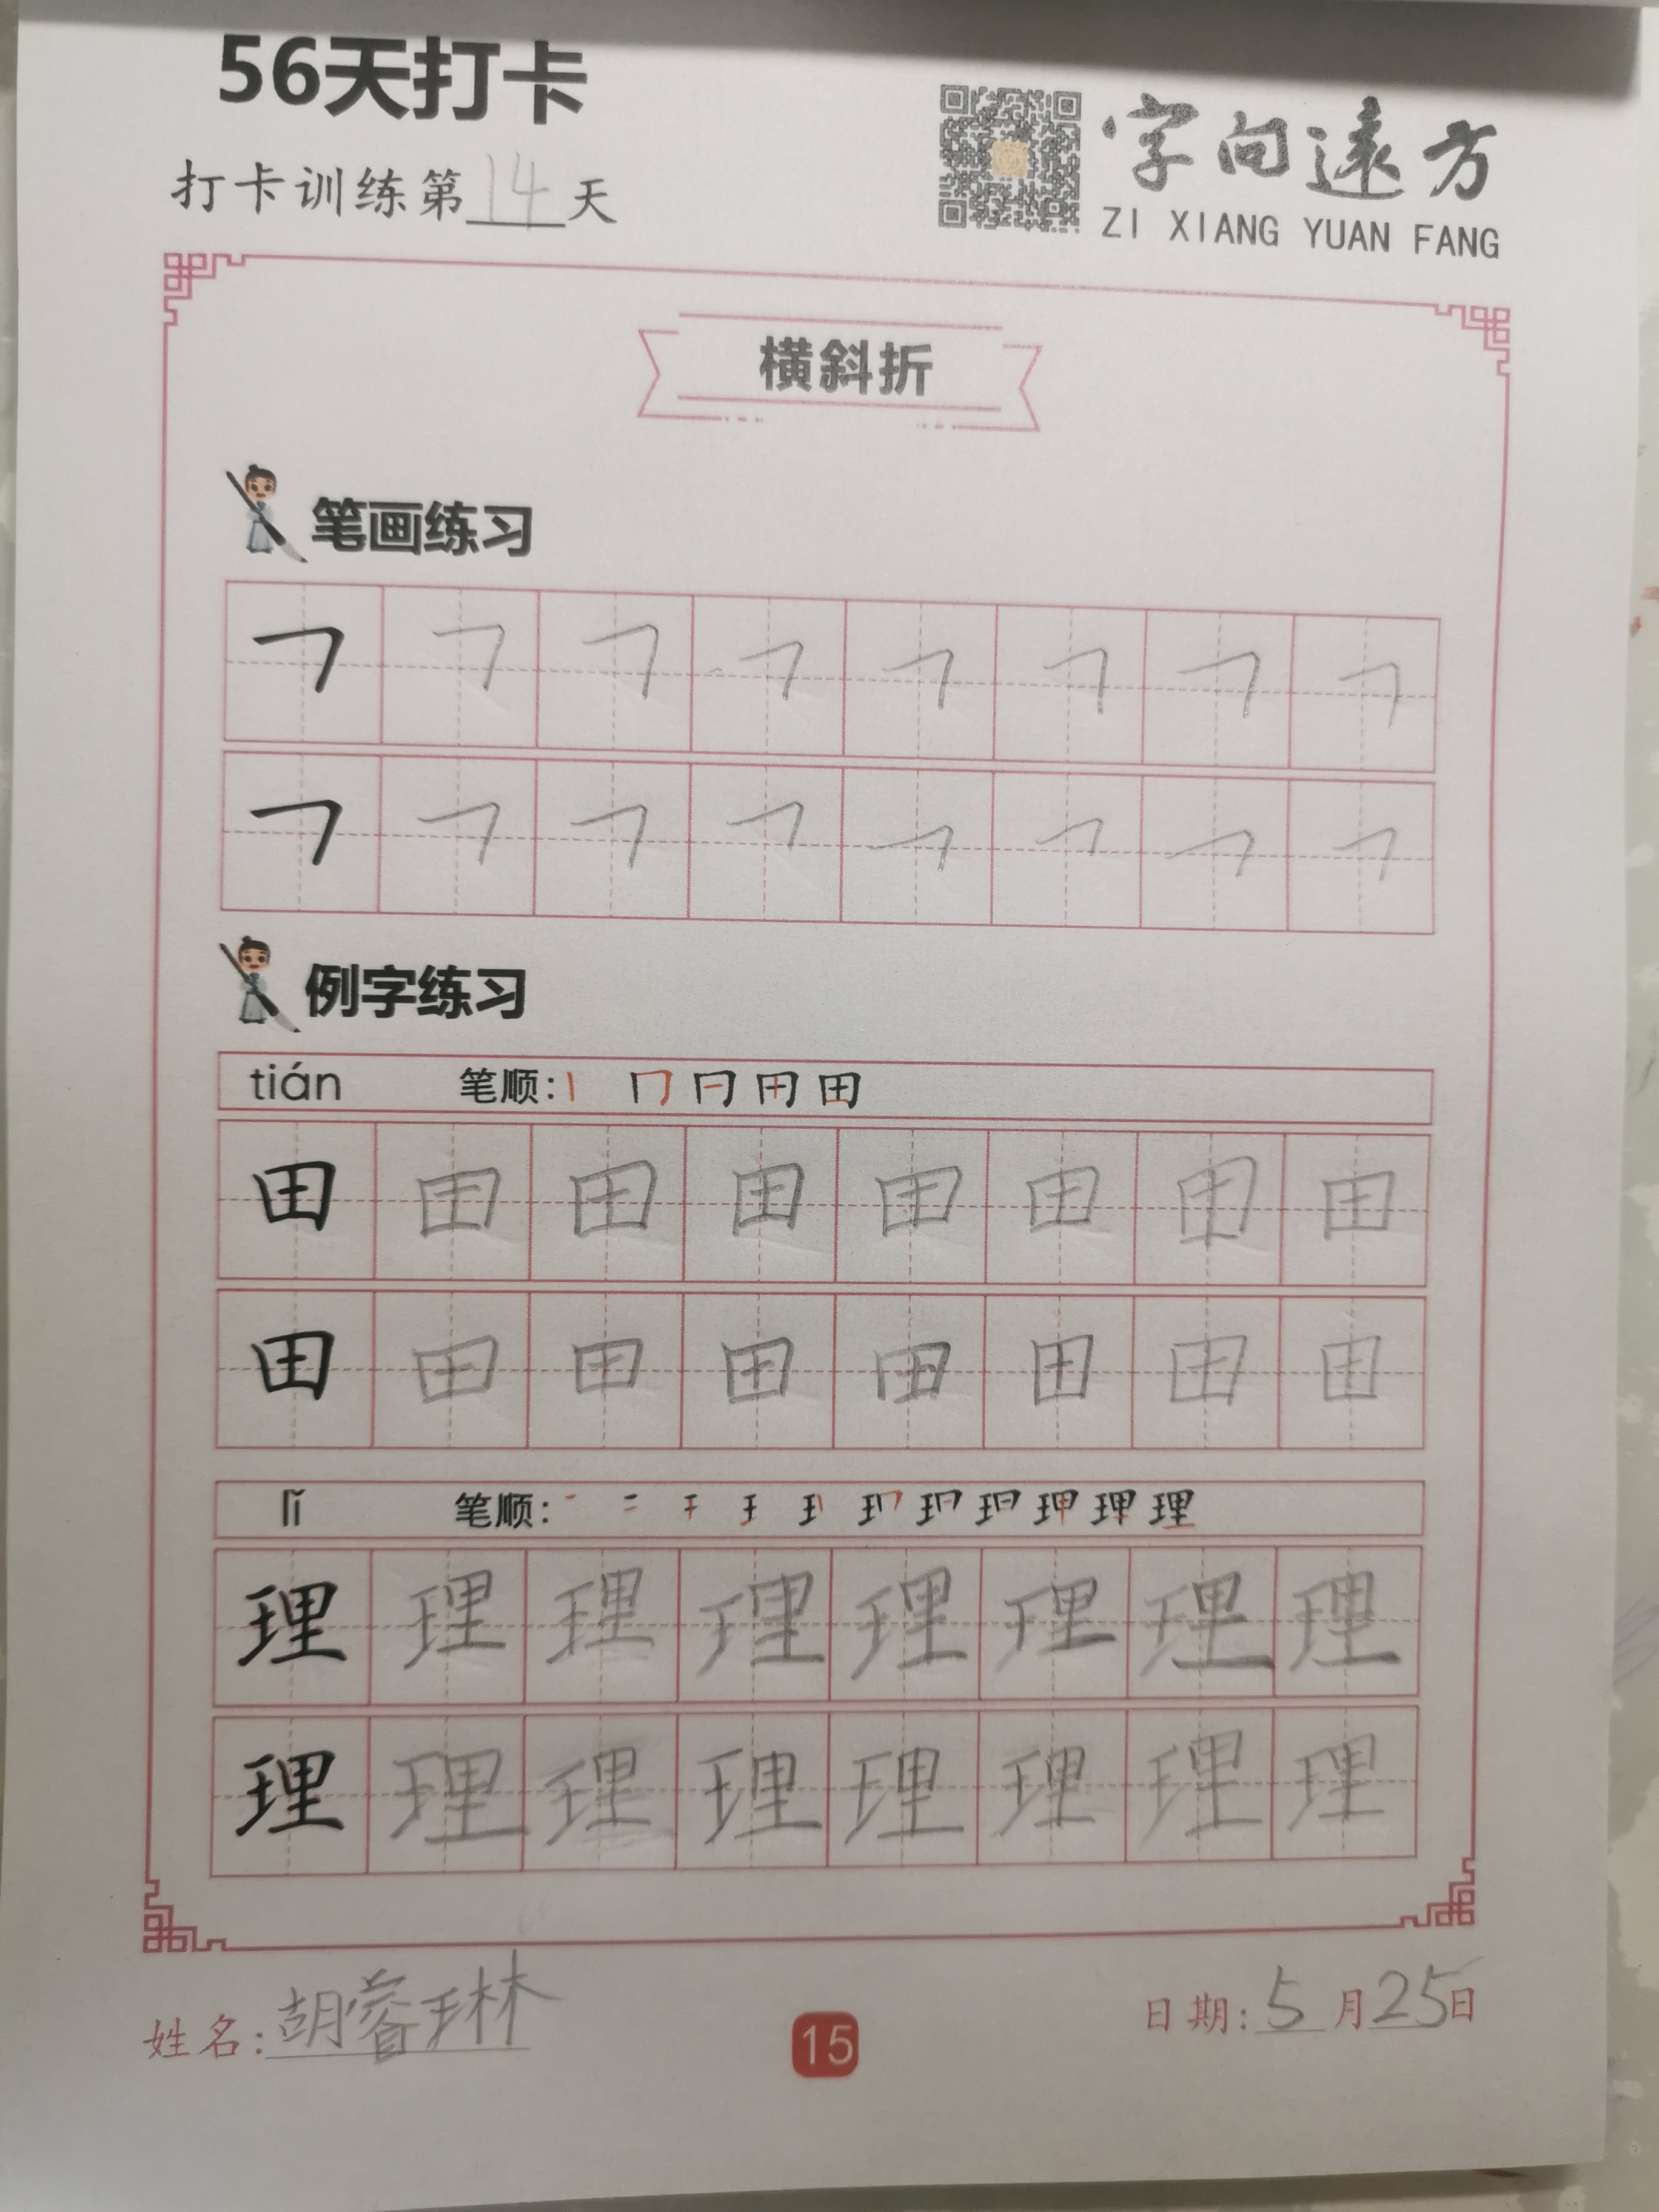 56天打卡
打卡训练第14天
字向遠方
ZI XIANG YUAN FANG
横斜折
笔画练习
㇕ ㇕ ㇕ ㇕ ㇕ ㇕ ㇕ ㇕
㇕ ㇕ ㇕ ㇕ ㇕ ㇕ ㇕ ㇕
例字练习
tián 笔顺:
田 田 田 田 田 田 田 田
田 田 田 田 田 田 田 田
lǐ 笔顺:
理 理 理 理 理 理 理 理
理 理 理 理 理 理 理 理
姓名:胡睿琳
15
日期:5月25日